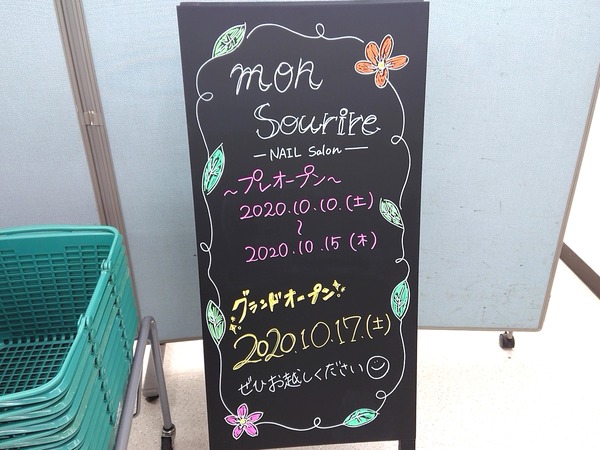 mon
Sourire
—NAIL Salon—
～プレオープン～
2020.10.10.(土)
～
2020.10.15(木)
グランドオープン
2020.10.17.(土)
ぜひお越しください